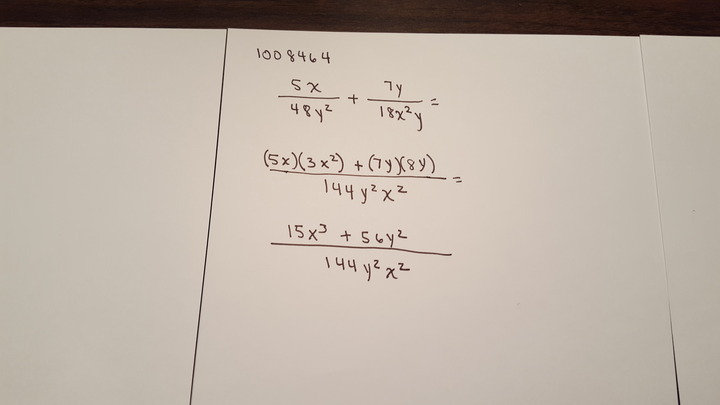 1008464
5x/48y² + 7y/18x²y =
(5x)(3x²) + (7y)(8y)/144y²x² =
15x³ + 56y²/144y²x²